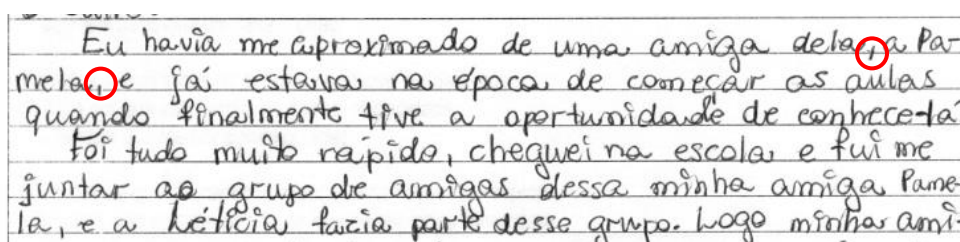 Eu havia me aproximado de uma amiga dela, a Pa-
mela, e já estava na época de começar as aulas
quando finalmente tive a oportunidade de conhece-lá
Foi tudo muito rápido, cheguei na escola e fui me
juntar ao grupo de amigas dessa minha amiga Pame-
la, e a Letícia fazia parte desse grupo. Logo minha ami-